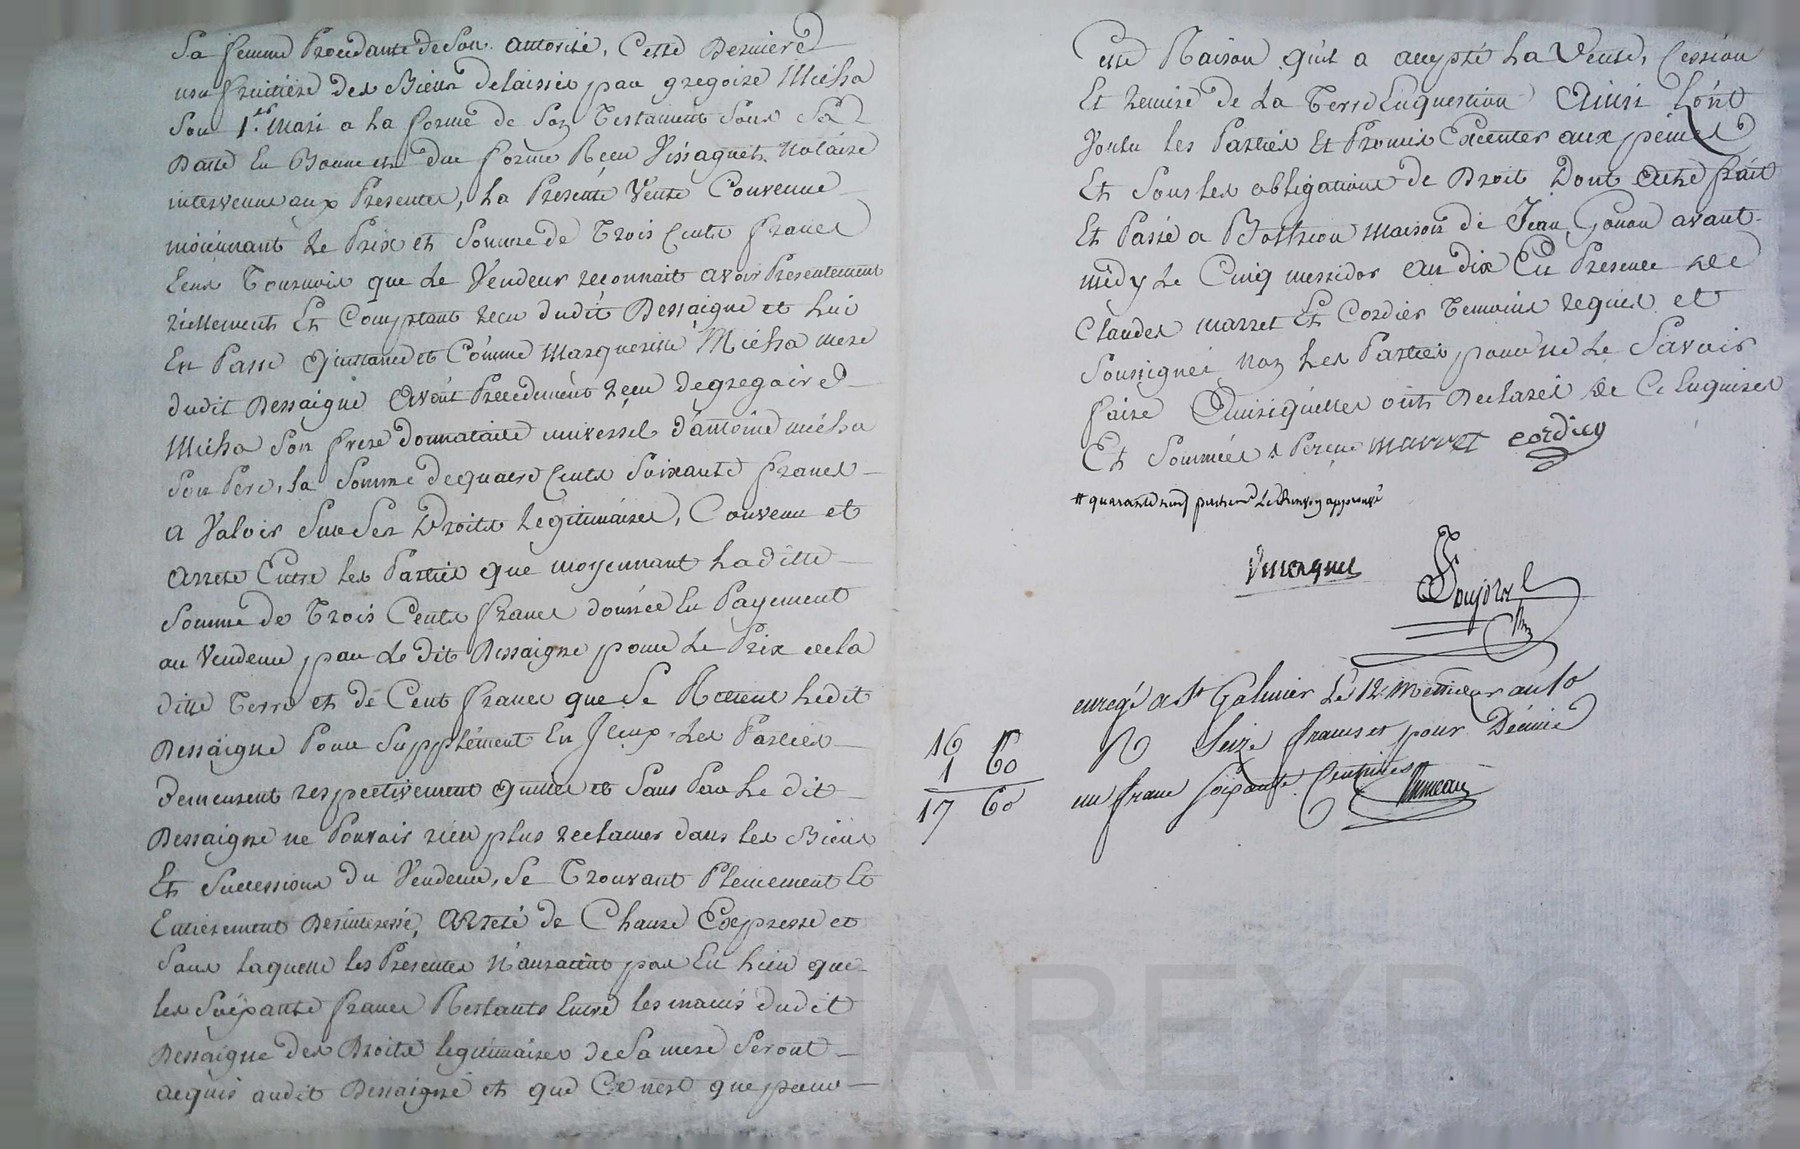 Sa femme Procedante de Son autorité, Cette Derniere
usufruitière des Biens delaissés par gregoire Micha
Son 1er Mari a la forme de Son Testament Sous Sa
Datte En Bonne et due forme Recu Vissaguet Notaire
intervenue aux Presentes, La Presente Vente Convenue
moiennant Le Prix et Somme de Trois Cents francs
Ecus Tournois que Le Vendeur reconnait avoir Presentement
réellement Et Comptant recu dudit Dessaigne et Lui
En Passe Quittance et Comme Marguerite Micha mere
dudit Dessaigne Avoit Precedement reçu de gregoire
Micha Son frere donnataire universel d'antoine micha
Son Pere, la Somme de quatre Cents Soixante francs
A Valoir Sur Ses Droits Legitimaires, Convenu et
Arreté Entre Les Parties que moyennant Laditte
Somme de Trois Cents francs donnée En Payement
au Vendeur par Le dit Dessaigne pour Le Prix de la
ditte Terre et de Cent francs que Se Retient Ledit
Dessaigne Pour Supplément En Iceux Les Parties
demeurent respectivement quittes et Sans Que Le dit
Dessaigne ne Pouvoir rien plus reclamer dans Les Biens
Et Successions du Vendeur, Se Trouvant Pleinement Et
Entierement Desinteressé, Arreté de Clause Expresse et
Sans Laquelle Les Presentes N'auraient pas Eu Lieu que
Les Soixante francs Restants Entre les mains dudit
Dessaigne des Droits legitimaires de Sa mere Seront
acquis audit Dessaigne et que Ce n'est que pour
Cette Raison qu'il a accepté La Vente, Cession
Et remise de La Terre En question Ainsi L'ont
Voulu Les Parties Et Promis Executer aux peines
Et Sous Les obligations de Droit Dont Acte fait
Et Passé a Bothéon Maison de Jean Gonon avant
midy Le Cinq messidor An dix En Presence de
Claudes Marret Et Cordier Temoins requis et
Soussignés Non Les Parties pour ne Le Savoir
faire Ainsi qu'elles ont Declarés de Ce Enquises
Et Sommées Marret Cordier
# quarante neuf Le Renvoy approuvé
enregé a St Galmier Le 12 Messidor an 10
R Seize francs et pour Decime
un franc soixante Centimes
16
1 60
17 60
CHAREYRON